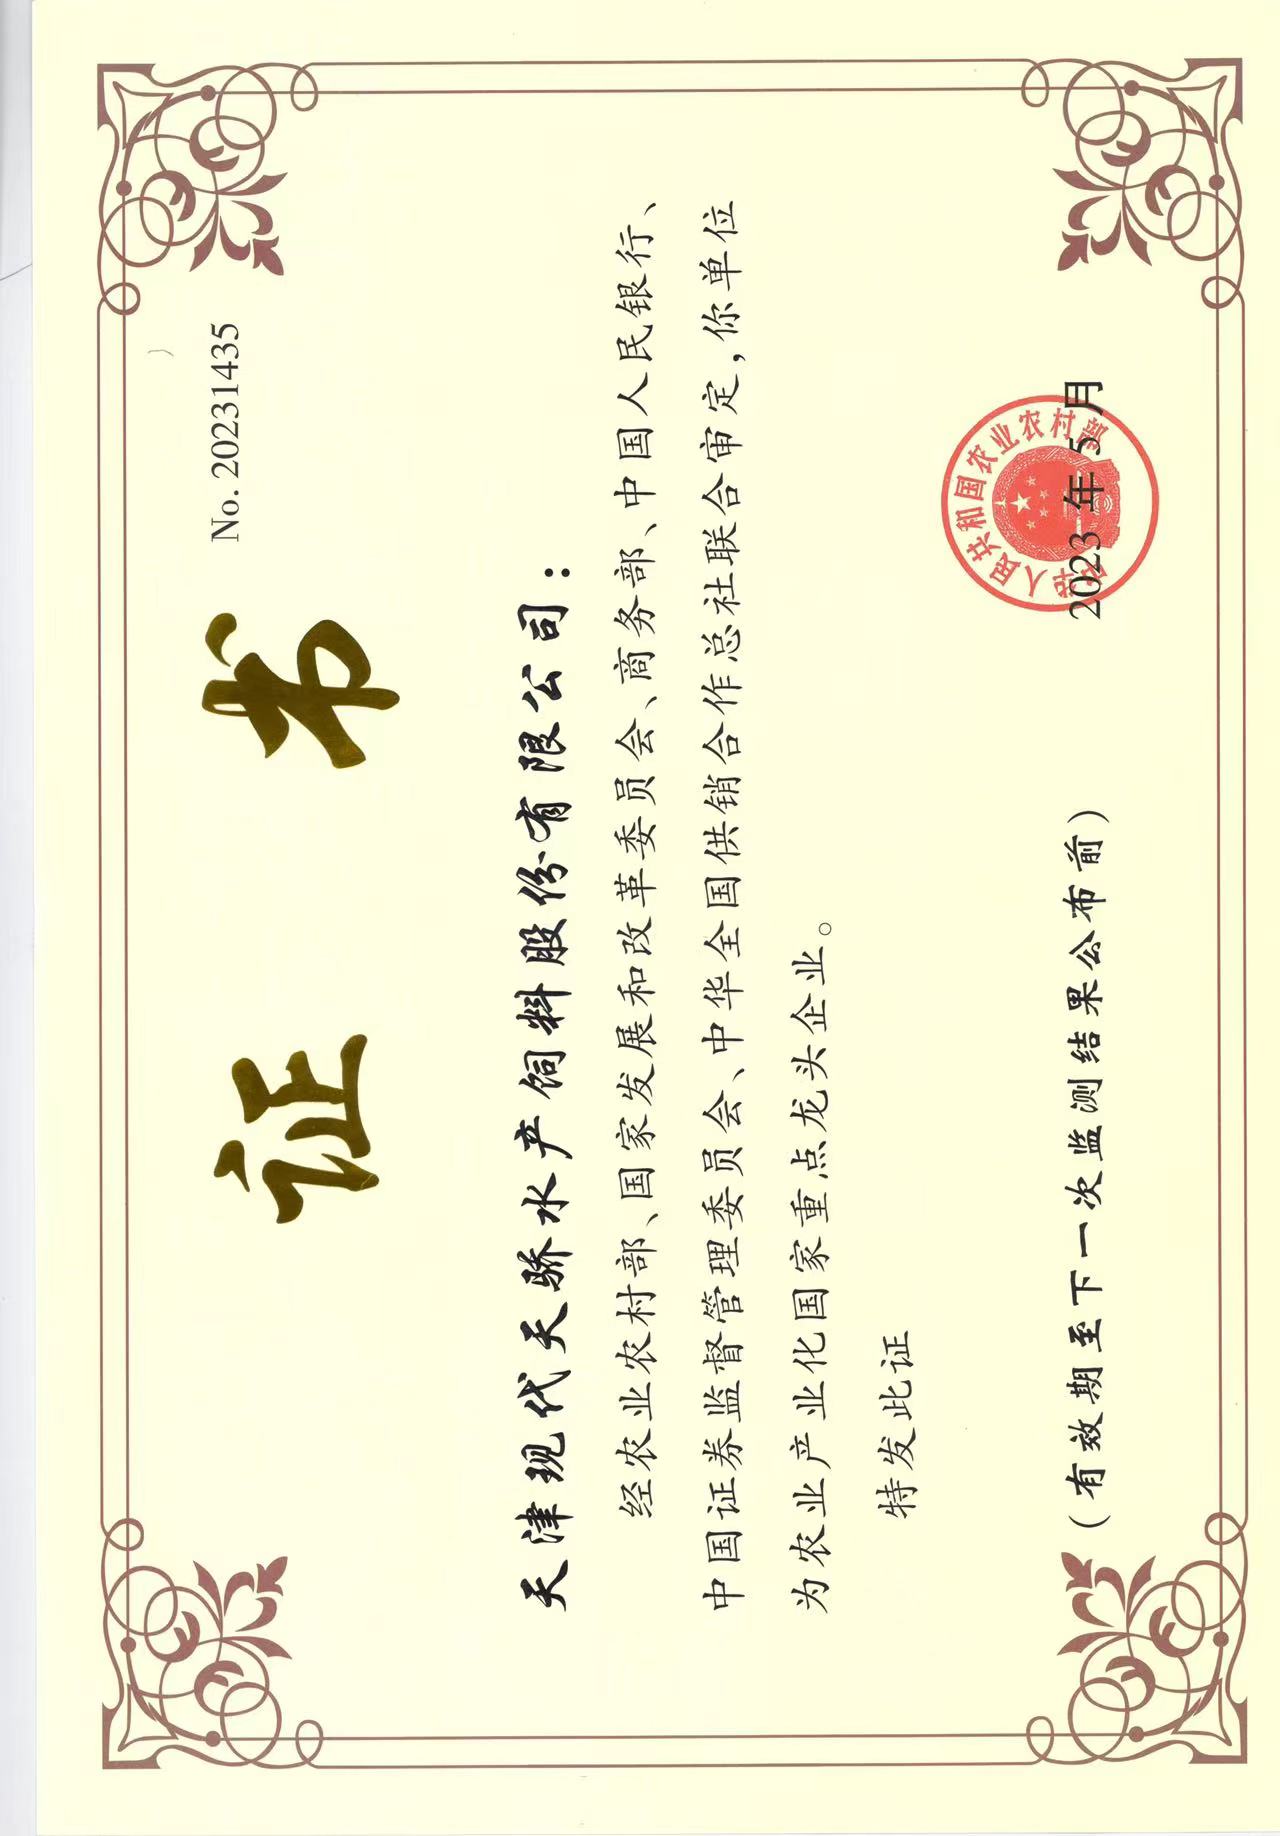 No. 20231435
证 书
天津现代天骄水产饲料股份有限公司：
经农业农村部、国家发展和改革委员会、商务部、中国人民银行、
中国证券监督管理委员会、中华全国供销合作总社联合审定，你单位
为农业产业化国家重点龙头企业。
特发此证
中华人民共和国农业农村部
2023 年 5 月
（有效期至下一次监测结果公布前）